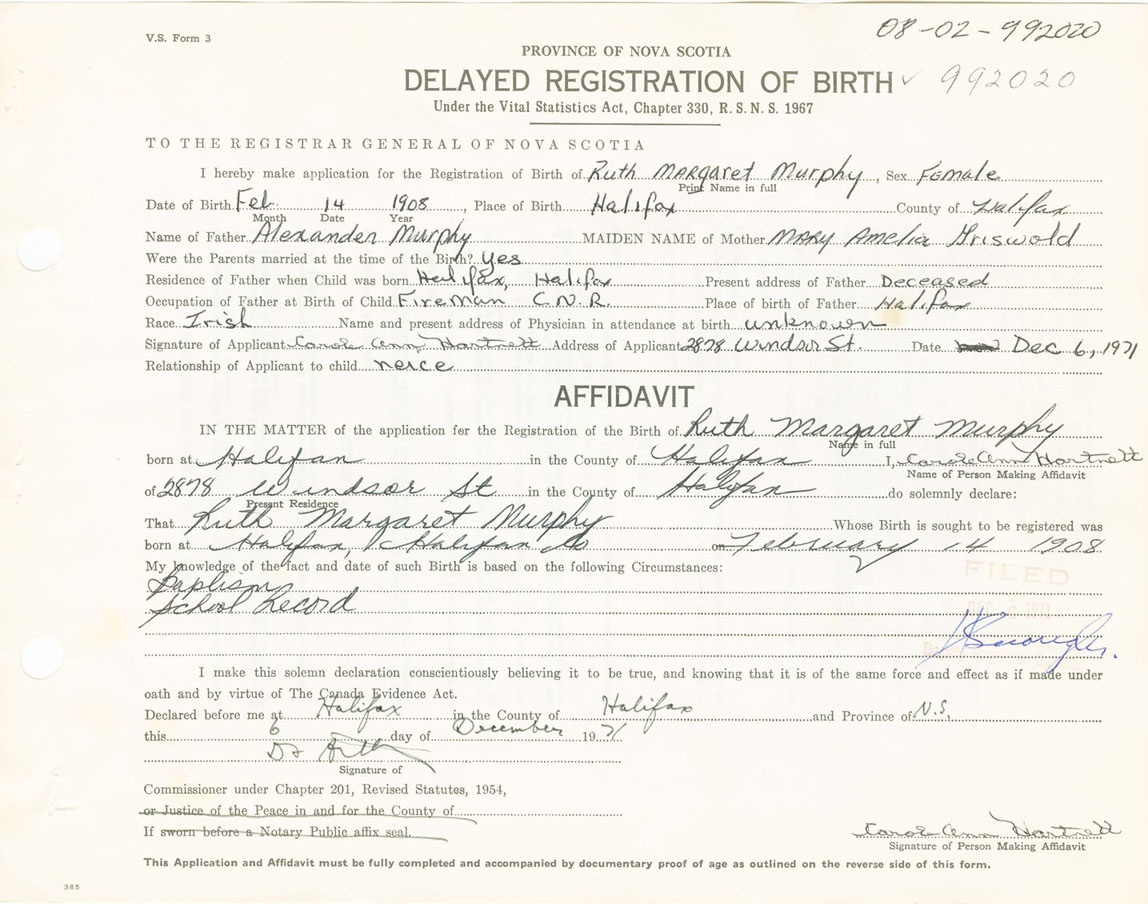 08-02-992020
V.S. Form 3
PROVINCE OF NOVA SCOTIA
DELAYED REGISTRATION OF BIRTH ✓ 992020
Under the Vital Statistics Act, Chapter 330, R.S.N.S. 1967
TO THE REGISTRAR GENERAL OF NOVA SCOTIA
I hereby make application for the Registration of Birth of Ruth Margaret Murphy, Sex Female
Print Name in full
Date of Birth Feb 14 1908, Place of Birth Halifax County of Halifax
Month Date Year
Name of Father Alexander Murphy MAIDEN NAME of Mother Mary Amelia Griswold
Were the Parents married at the time of the Birth? Yes
Residence of Father when Child was born Halifax, Halifax Present address of Father Deceased
Occupation of Father at Birth of Child Fireman C.N.R. Place of birth of Father Halifax
Race Irish Name and present address of Physician in attendance at birth unknown
Signature of Applicant Carole Ann Hartnett Address of Applicant 2878 Windsor St. Date Dec 6, 1971
Relationship of Applicant to child neice
AFFIDAVIT
IN THE MATTER of the application for the Registration of the Birth of Ruth Margaret Murphy
Name in full
born at Halifax in the County of Halifax I, Carole Ann Hartnett
Name of Person Making Affidavit
of 2878 Windsor St in the County of Halifax do solemnly declare:
Present Residence
That Ruth Margaret Murphy Whose Birth is sought to be registered was
born at Halifax, Halifax Co on February 14 1908
My knowledge of the fact and date of such Birth is based on the following Circumstances:
Baptism
School Record
FILED
DEC 6 1971
I make this solemn declaration conscientiously believing it to be true, and knowing that it is of the same force and effect as if made under
oath and by virtue of The Canada Evidence Act.
Declared before me at Halifax in the County of Halifax and Province of N.S.
this 6 day of December 1971
Signature of
Commissioner under Chapter 201, Revised Statutes, 1954,
or Justice of the Peace in and for the County of
If sworn before a Notary Public affix seal.
Carole Ann Hartnett
Signature of Person Making Affidavit
This Application and Affidavit must be fully completed and accompanied by documentary proof of age as outlined on the reverse side of this form.
385